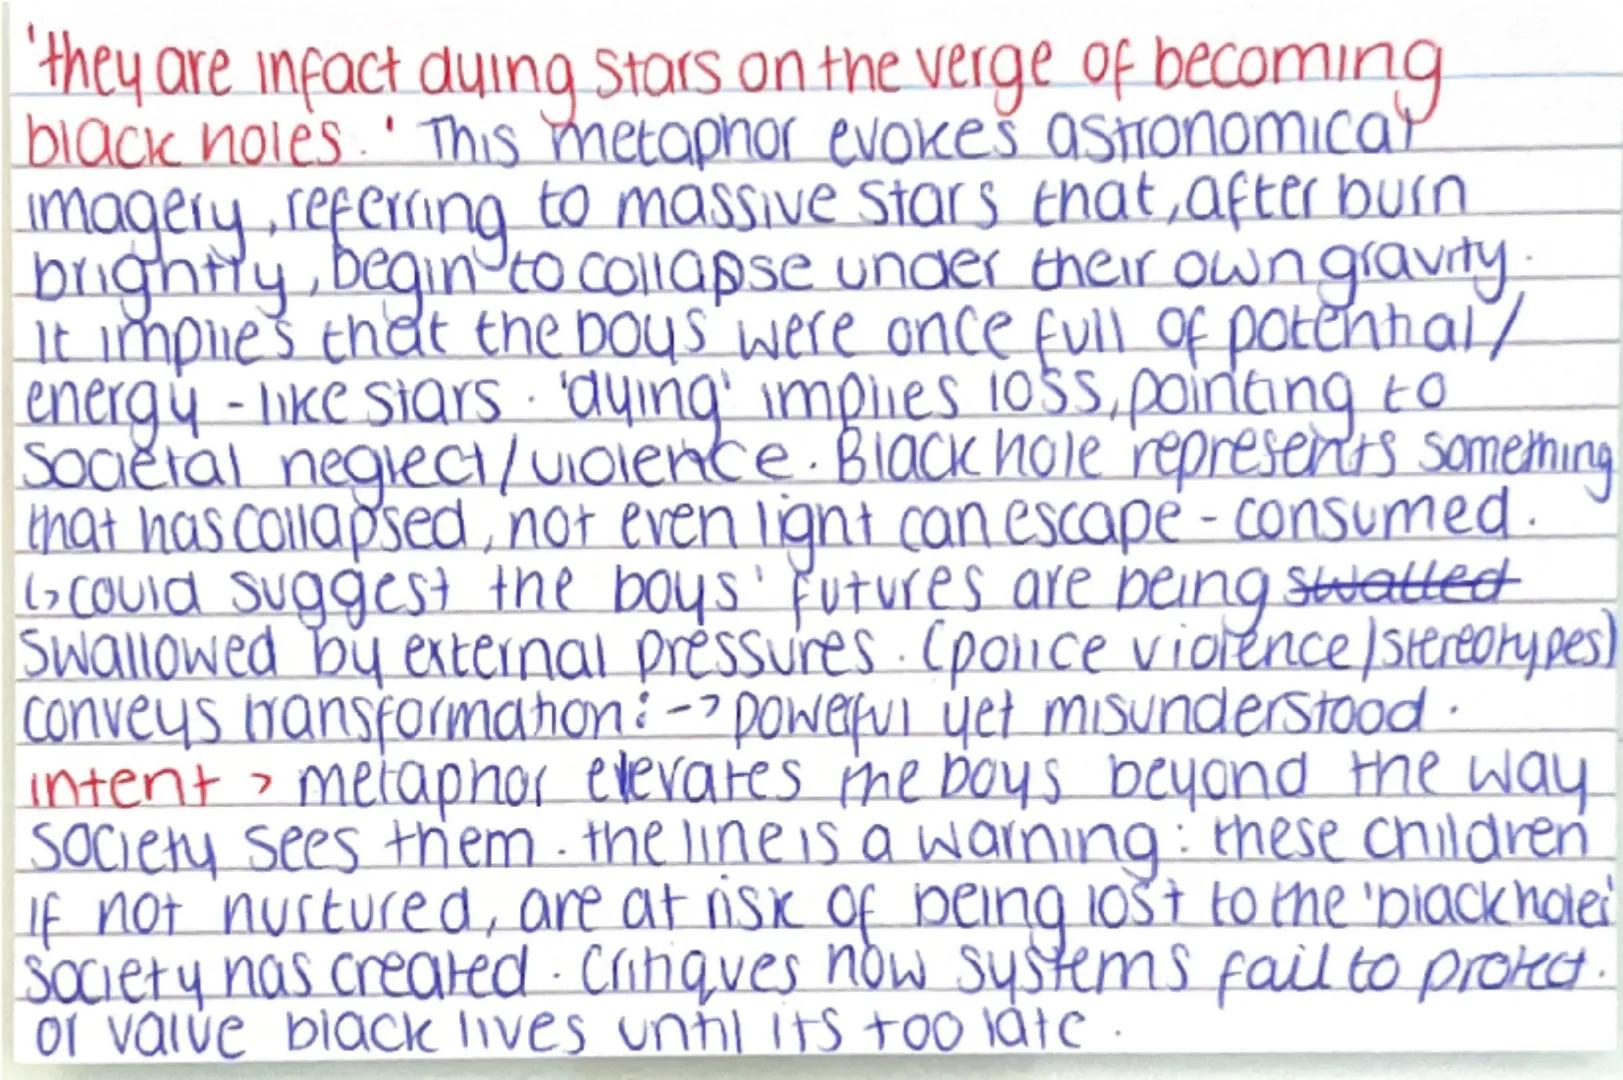 'they are infact dying stars on the verge of becoming
black holes.' This metaphor evokes astronomical
imagery, referring to massive stars that, after burn
brightly, begin to collapse under their own gravity.
It implies that the boys were once full of potential/
energy - like stars. 'dying' implies loss, pointing to
societal neglect/violence. Black hole represents something
that has collapsed, not even light can escape - consumed.
↳ could suggest the boys' futures are being swalled
swallowed by external pressures. (police violence/stereotypes)
conveys transformation: -> powerful yet misunderstood.
intent > metaphor elevates the boys beyond the way
society sees them. the line is a warning: these children
if not nurtured, are at risk of being lost to the 'black holes'
society has created. Critiques how systems fail to protect.
or value black lives until its too late.